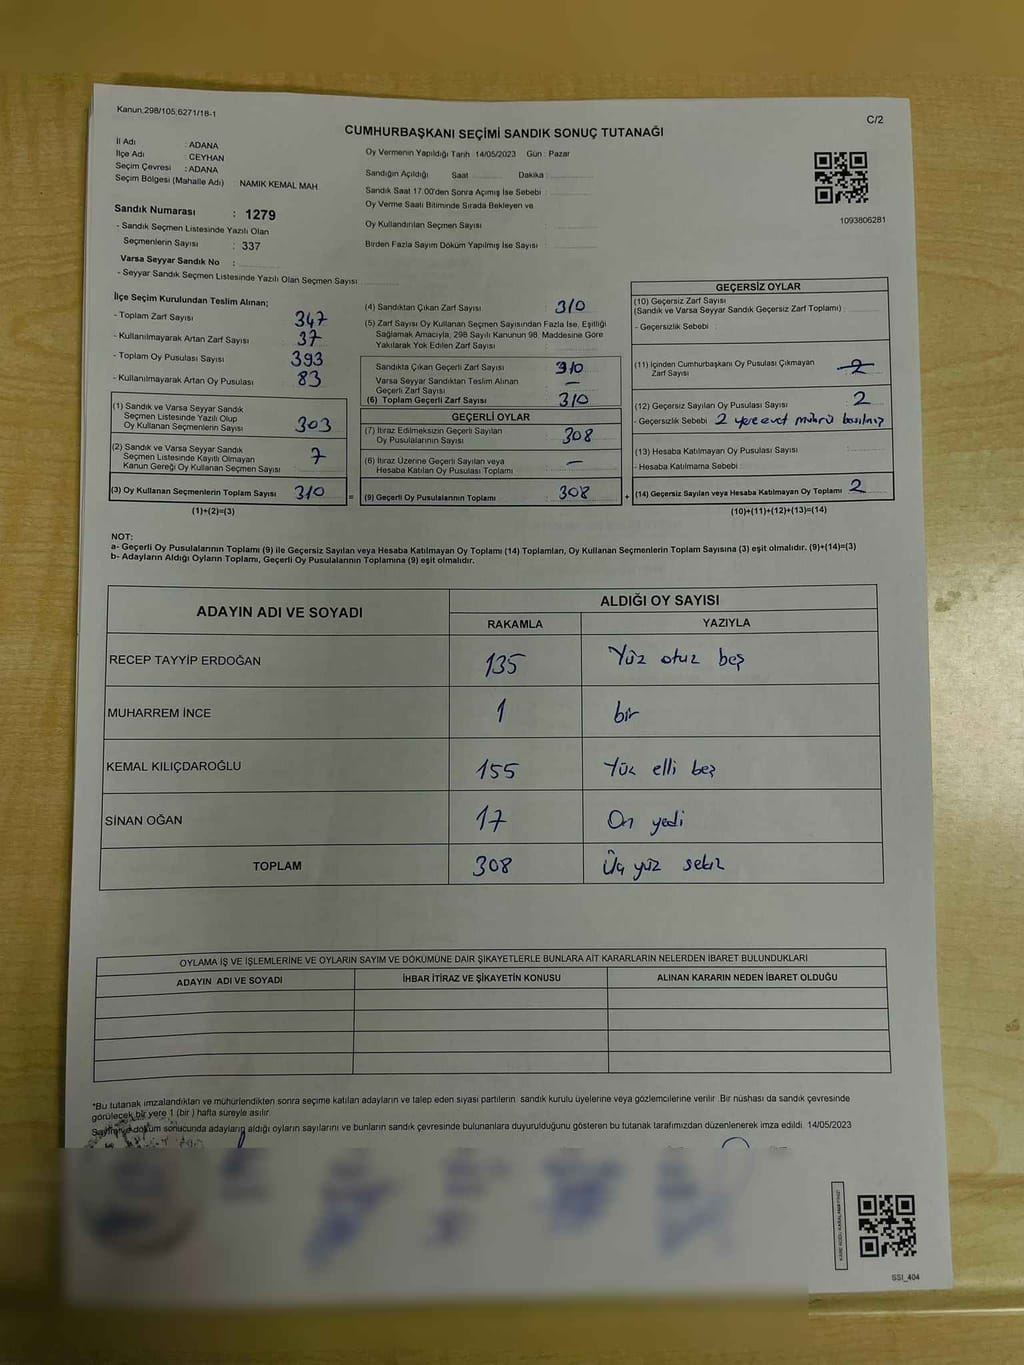 Kanun;298/105,6271/18-1
C/2
CUMHURBAŞKANI SEÇİMİ SANDIK SONUÇ TUTANAĞI
İl Adı : ADANA
İlçe Adı : CEYHAN
Seçim Çevresi : ADANA
Seçim Bölgesi (Mahalle Adı) : NAMIK KEMAL MAH.
Sandık Numarası : 1279
- Sandık Seçmen Listesinde Yazılı Olan
Seçmenlerin Sayısı : 337
Varsa Seyyar Sandık No :
- Seyyar Sandık Seçmen Listesinde Yazılı Olan Seçmen Sayısı
Oy Vermenin Yapıldığı Tarih 14/05/2023 Gün : Pazar
Sandığın Açıldığı Saat Dakika :
Sandık Saat 17.00'den Sonra Açımış İse Sebebi :
Oy Verme Saati Bitiminde Sırada Bekleyen ve
Oy Kullandırılan Seçmen Sayısı :
Birden Fazla Sayım Döküm Yapılmış İse Sayısı :
1093806281
İlçe Seçim Kurulundan Teslim Alınan;
- Toplam Zarf Sayısı 347
- Kullanılmayarak Artan Zarf Sayısı 37
- Toplam Oy Pusulası Sayısı 393
- Kullanılmayarak Artan Oy Pusulası 83
(1) Sandık ve Varsa Seyyar Sandık
Seçmen Listesinde Yazılı Olup
Oy Kullanan Seçmenlerin Sayısı 303
(2) Sandık ve Varsa Seyyar Sandık
Seçmen Listesinde Kayıtlı Olmayan
Kanun Gereği Oy Kullanan Seçmen Sayısı : 7
(3) Oy Kullanan Seçmenlerin Toplam Sayısı 310 =
(1)+(2)=(3)
(4) Sandıktan Çıkan Zarf Sayısı : 310
(5) Zarf Sayısı Oy Kullanan Seçmen Sayısından Fazla İse, Eşitliği
Sağlamak Amacıyla, 298 Sayılı Kanunun 98. Maddesine Göre
Yakılarak Yok Edilen Zarf Sayısı :
Sandıkta Çıkan Geçerli Zarf Sayısı : 310
Varsa Seyyar Sandıktan Teslim Alınan
Geçerli Zarf Sayısı : —
(6) Toplam Geçerli Zarf Sayısı : 310
GEÇERLİ OYLAR
(7) İtiraz Edilmeksizin Geçerli Sayılan
Oy Pusulalarının Sayısı : 308
(8) İtiraz Üzerine Geçerli Sayılan veya
Hesaba Katılan Oy Pusulası Toplamı : —
(9) Geçerli Oy Pusulalarının Toplamı : 308 +
GEÇERSİZ OYLAR
(10) Geçersiz Zarf Sayısı
(Sandık ve Varsa Seyyar Sandık Geçersiz Zarf Toplamı) :
- Geçersizlik Sebebi :
(11) İçinden Cumhurbaşkanı Oy Pusulası Çıkmayan
Zarf Sayısı : 2
(12) Geçersiz Sayılan Oy Pusulası Sayısı : 2
- Geçersizlik Sebebi : 2 yere evet mührü basılmış
(13) Hesaba Katılmayan Oy Pusulası Sayısı :
- Hesaba Katılmama Sebebi :
(14) Geçersiz Sayılan veya Hesaba Katılmayan Oy Toplamı : 2
(10)+(11)+(12)+(13)=(14)
NOT:
a- Geçerli Oy Pusulalarının Toplamı (9) ile Geçersiz Sayılan veya Hesaba Katılmayan Oy Toplamı (14) Toplamları, Oy Kullanan Seçmenlerin Toplam Sayısına (3) eşit olmalıdır. (9)+(14)=(3)
b- Adayların Aldığı Oyların Toplamı, Geçerli Oy Pusulalarının Toplamına (9) eşit olmalıdır.
ADAYIN ADI VE SOYADI
ALDIĞI OY SAYISI
RAKAMLA YAZIYLA
RECEP TAYYİP ERDOĞAN 135 Yüz otuz beş
MUHARREM İNCE 1 bir
KEMAL KILIÇDAROĞLU 155 Yüz elli beş
SİNAN OĞAN 17 On yedi
TOPLAM 308 Üç yüz sekiz
OYLAMA İŞ VE İŞLEMLERİNE VE OYLARIN SAYIM VE DÖKÜMÜNE DAİR ŞİKAYETLERLE BUNLARA AİT KARARLARIN NELERDEN İBARET BULUNDUKLARI
ADAYIN ADI VE SOYADI İHBAR İTİRAZ VE ŞİKAYETİN KONUSU ALINAN KARARIN NEDEN İBARET OLDUĞU
*Bu tutanak imzalandıktan ve mühürlendikten sonra seçime katılan adayların ve talep eden siyasi partilerin sandık kurulu üyelerine veya gözlemcilerine verilir. Bir nüshası da sandık çevresinde
görülecek bir yere 1 (bir) hafta süreyle asılır.
Sayım ve döküm sonucunda adayların aldığı oyların sayılarını ve bunların sandık çevresinde bulunanlara duyurulduğunu gösteren bu tutanak tarafımızdan düzenlenerek imza edildi. 14/05/2023
KARE KODU KARALAMAYINIZ!
SSI_404